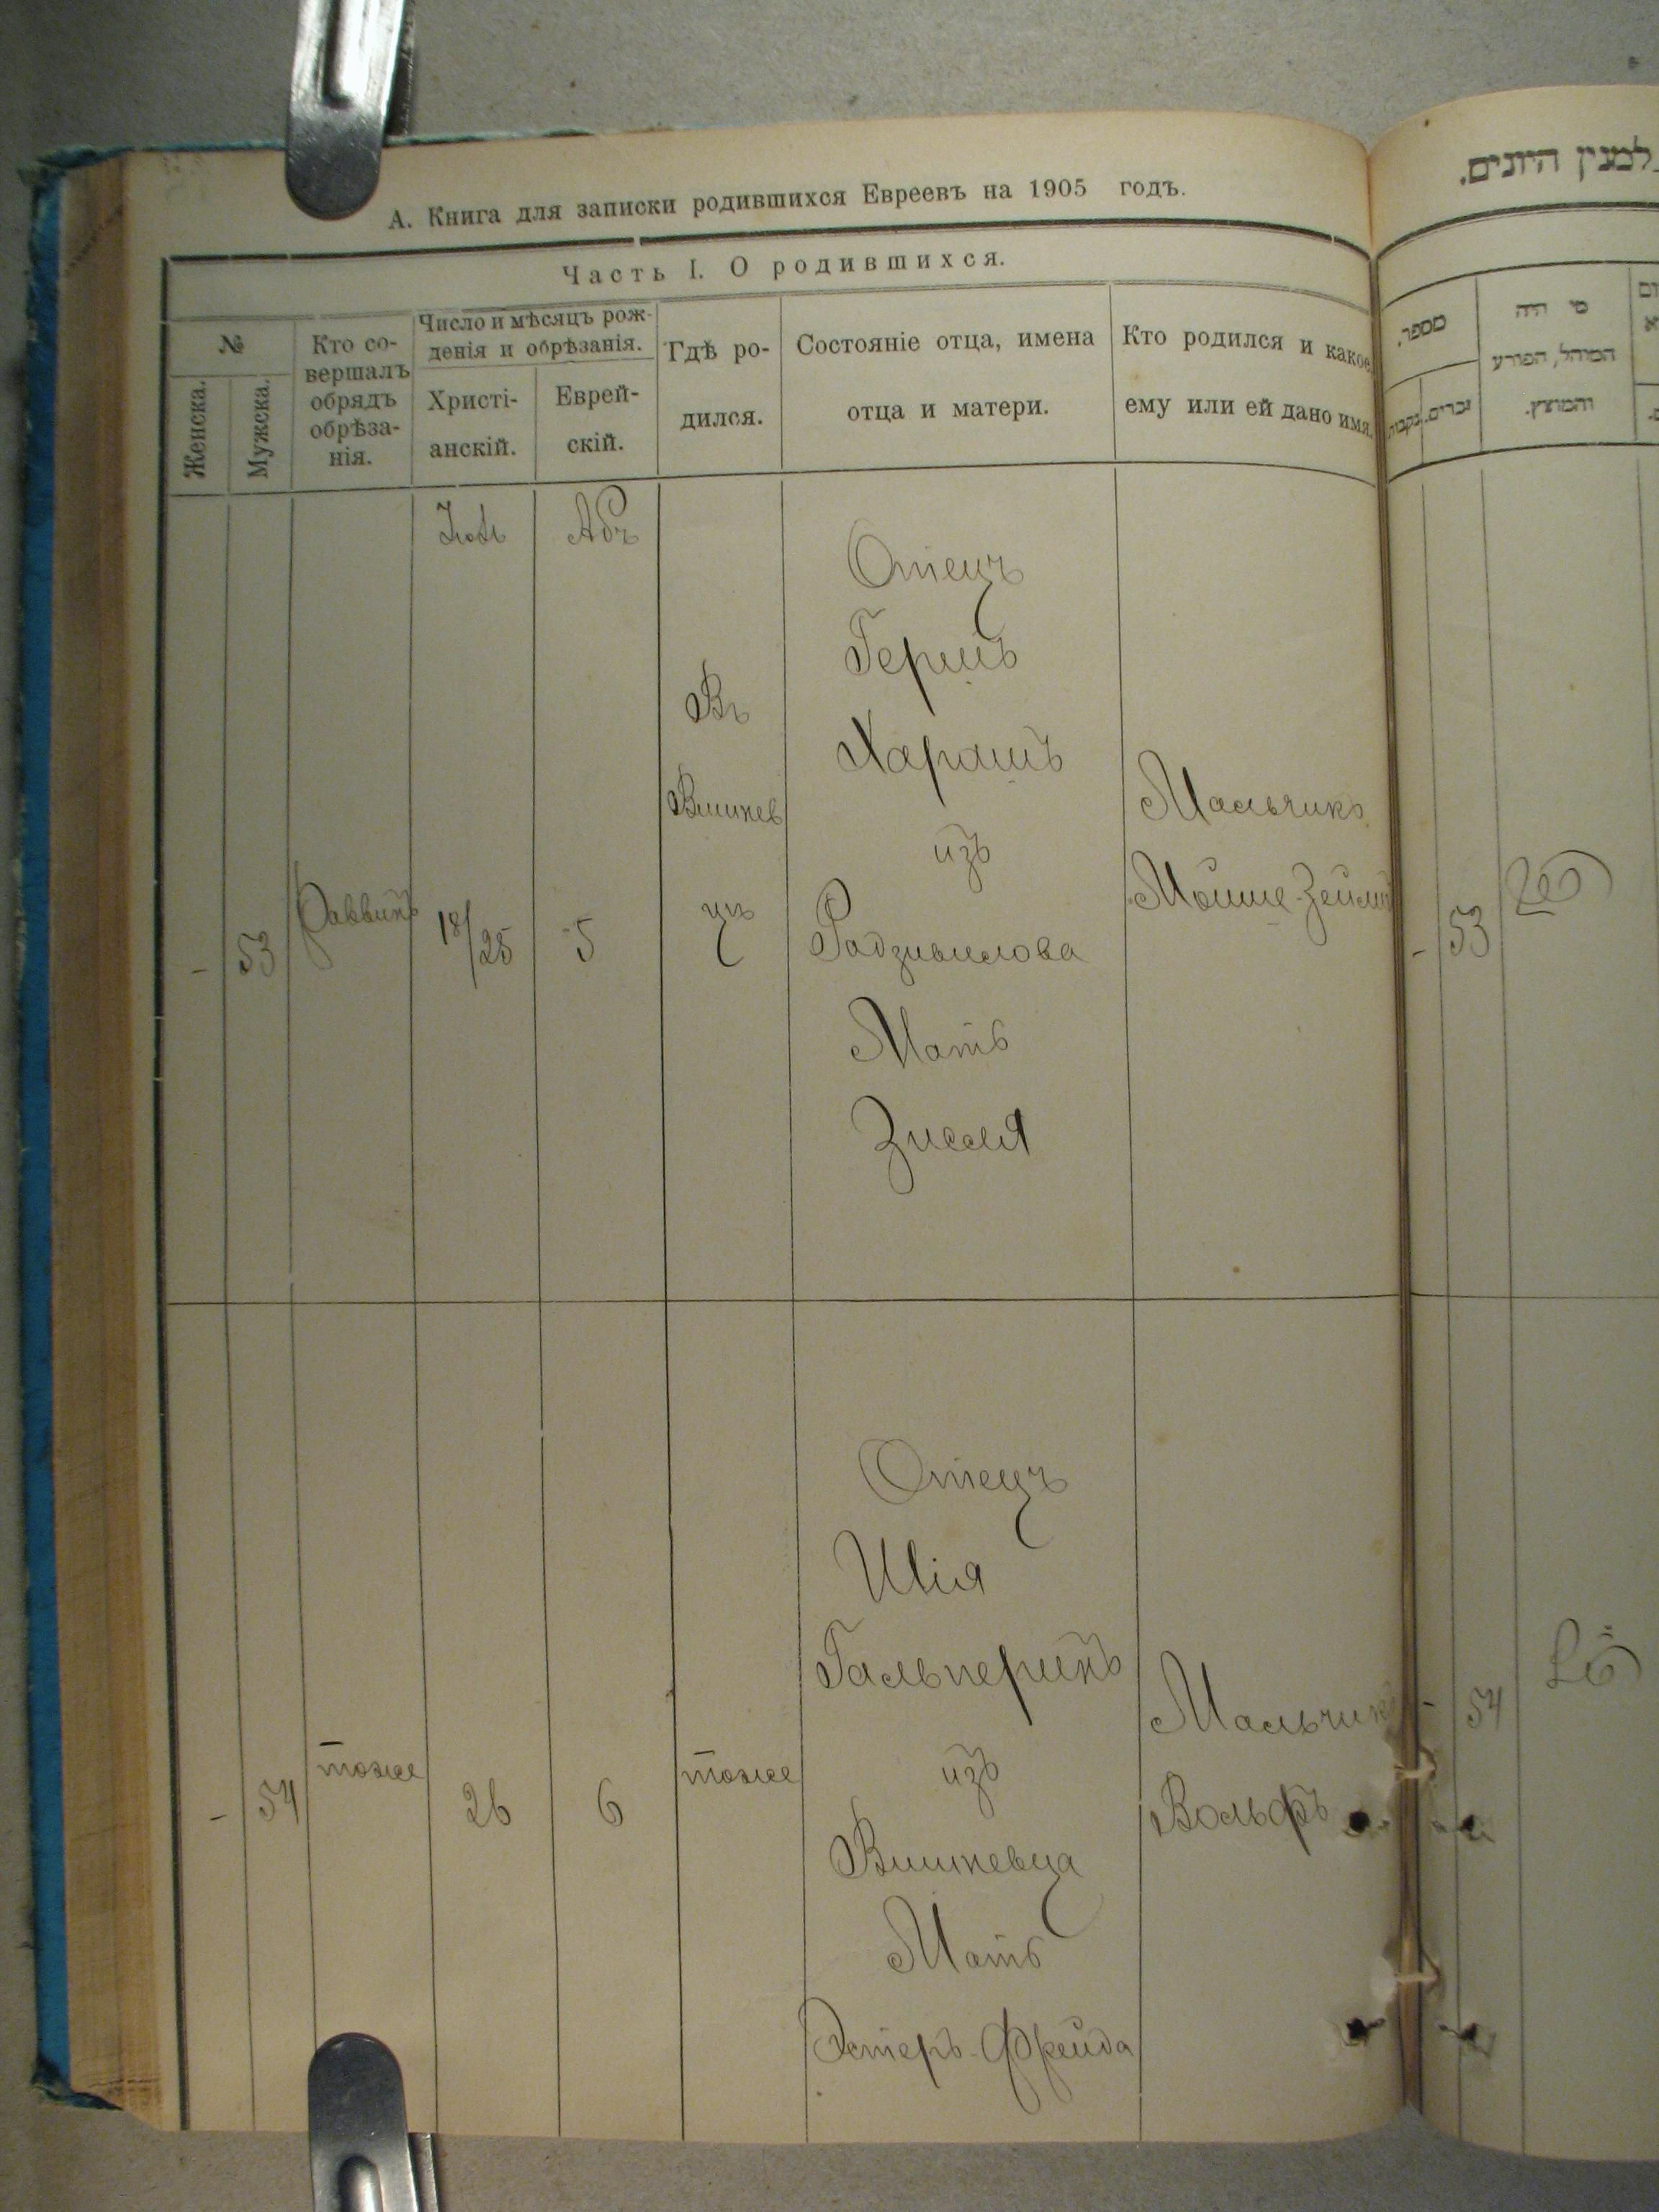 А. Книга для записки родившихся Евреевъ на 1905 годъ.
Часть I. О родившихся.
№
Женска.
Мужска.
Кто со-
вершалъ
обрядъ
обрѣза-
нія.
Число и мѣсяцъ рож-
денія и обрѣзанія.
Христі-
анскій.
Еврей-
скій.
Гдѣ ро-
дился.
Состояніе отца, имена
отца и матери.
Кто родился и какое
ему или ей дано имя.
-
53
Раввинъ
18/25
5
Въ
Вишнев
цѣ
Отецъ
Гершъ
Харашъ
изъ
Радзивилова
Мать
Зисля
Мальчикъ
Мойше-
-
54
тоже
26
6
тоже
Отецъ
Шія
Гальперинъ
изъ
Вишневца
Мать
Эстеръ-Фрейда
Мальчикъ
Вольфъ
למנין היונים.
מספר.
נקבות
זכרים.
מי היה
המוהל, הפורע
והמוצץ.
-
53
-
54